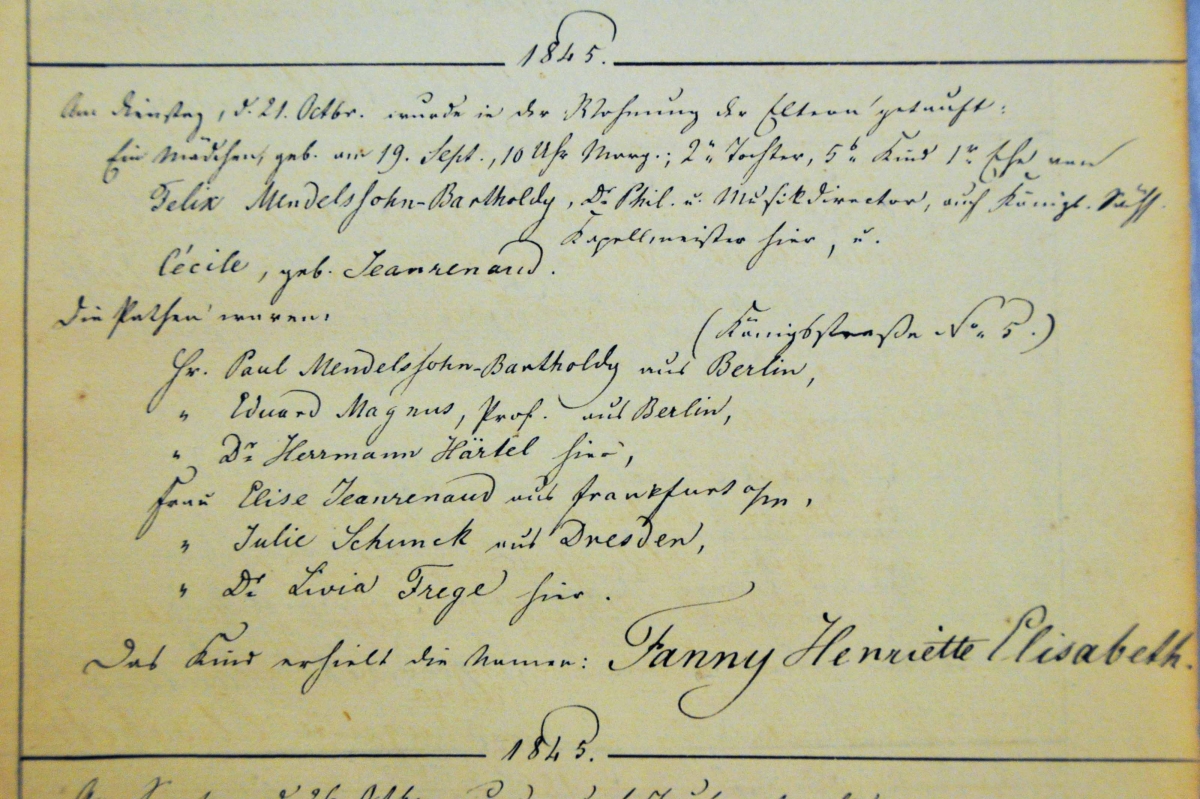 1845.
Am Dienstag, d. 21. Octbr. wurde in der Wohnung der Eltern getauft:
Ein Mädchen, geb. am 19. Sept., 10 Uhr Morg.; 2te Tochter, 5tes Kind 1r Ehe von
Felix Mendelssohn-Bartholdy, Dr Phil. u. Musikdirector, auch Königl. Sächs.
Kapellmeister hier, u.
Cécile, geb. Jeanrenaud.
Die Pathen waren:
(Königsstraße No 5.)
Hr. Paul Mendelssohn-Bartholdy aus Berlin,
" Eduard Magnus, Prof. aus Berlin,
" Dr Herrmann Härtel hier,
Frau Elise Jeanrenaud aus Frankfurt a/m,
" Julie Schunck aus Dresden,
" Dr Livia Frege hier.
Das Kind erhielt die Namen: Fanny Henriette Elisabeth.
1845.